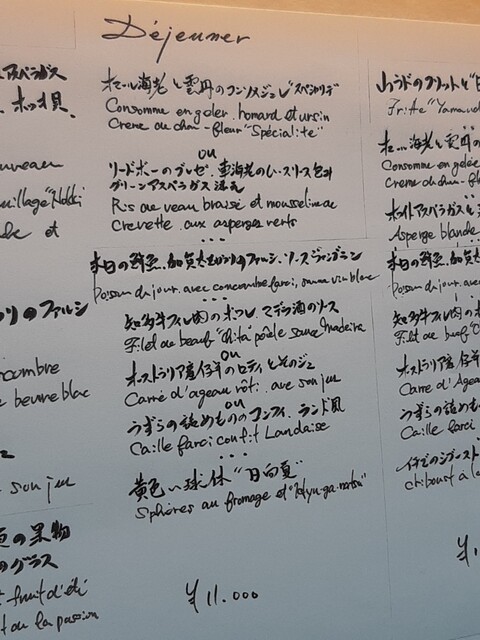 Déjeuner
オマール海老と雲丹のコンソメジュレ "スペシャリテ"
Consomme en gelèe, homard et ursin
Creme du chou-fleur "Spécialité"
ou
リードボーのブレゼ、車海老のムースリーヌ包み
グリーンアスペラガス 添え
Ris de veau braisé et mousseline de
Crevette aux asperges verts
...
本日の鮮魚、加賀太きゅうりのファルシ、ソースヴァンブラン
Poisson du jour, avec concombre farci, sauce vin blanc
...
知多牛フィレ肉のポワレ マデラ酒のソース
Filet du beuf "Chita" poêle sauce madeira
ou
オーストラリア産仔羊のロティとそのジュ
Carré d'agneau rôti, ave son jeu
ou
うずらの詰めもののコンフィ、ランド風
Caille farci confit Landaise
...
黄色い球体 "日向夏"
Sphères au fromage et "Hyu-ga-natsu"
¥11.000
アスペラガス
ホッキ貝、
nouveau
et
のファルシ
concombre
beurre blanc
son jeu
の果物
のグラス
fruit d'été
ou la passion
Frite "Yamau
オマール海老と雲丹の
Consomme en gelée
Creme du chou-fle
ホワイトアスペラガスと
Asperge blande
本日の鮮魚、加賀太
Poisson du jour, avec
知多牛フィレ肉の
Filet du beuf "C
オーストラリア産仔羊
Carre d'Agea
うずらの詰めも
Caille farci
chiboust à l